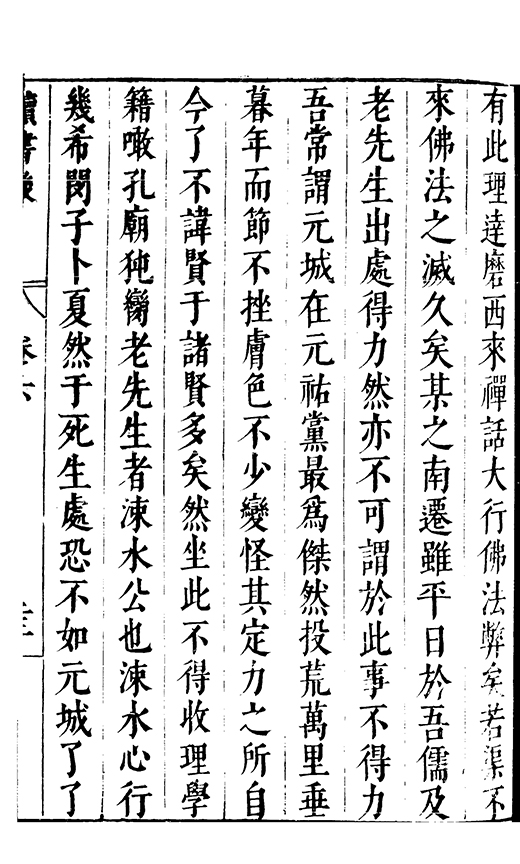 有此理達磨西來禪話大行佛法弊矣若渠不
來佛法之滅久矣某之南遷雖平日於吾儒及
老先生出處得力然亦不可謂於此事不得力
吾常謂元城在元祐黨最爲傑然投荒萬里垂
暮年而節不挫膚色不少變怪其定力之所自
今了不諱賢于諸賢多矣然坐此不得收理學
籍噉孔廟㹠臠老先生者涑水公也涑水心行
幾希閔子卜夏然于死生處恐不如元城了了
讀書後
卷六